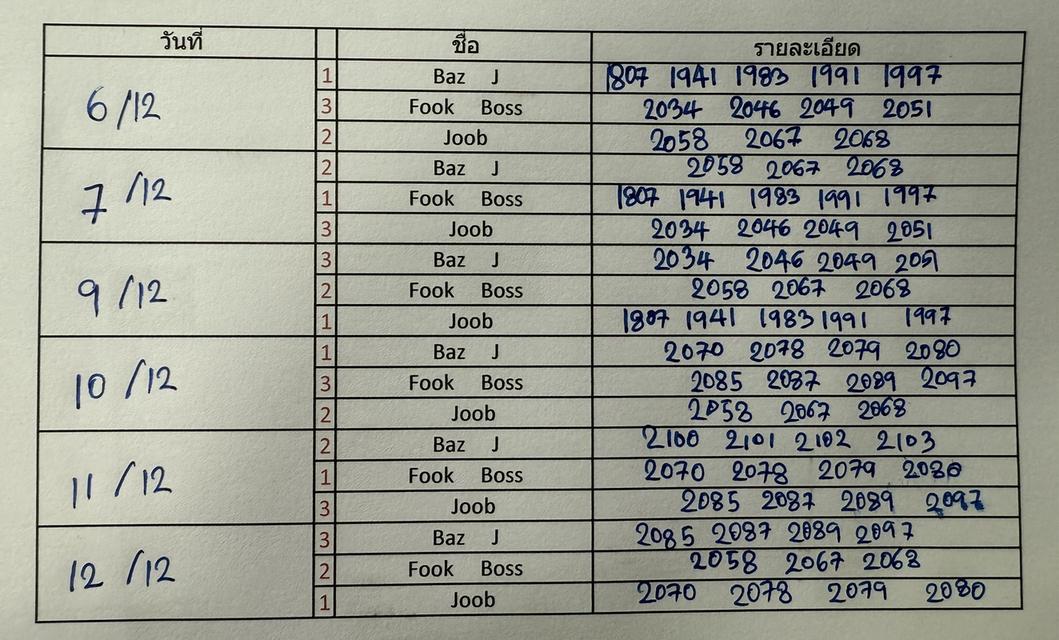 วันที่ ชื่อ รายละเอียด
6/12 1 Baz J 1807 1941 1983 1991 1997
3 Fook Boss 2034 2046 2049 2051
2 Joob 2058 2067 2068
7/12 2 Baz J 2058 2067 2068
1 Fook Boss 1807 1941 1983 1991 1997
3 Joob 2034 2046 2049 2051
9/12 3 Baz J 2034 2046 2049 2051
2 Fook Boss 2058 2067 2068
1 Joob 1807 1941 1983 1991 1997
10/12 1 Baz J 2070 2078 2079 2080
3 Fook Boss 2085 2087 2089 2097
2 Joob 2058 2067 2068
11/12 2 Baz J 2100 2101 2102 2103
1 Fook Boss 2070 2078 2079 2080
3 Joob 2085 2087 2089 2097
12/12 3 Baz J 2085 2087 2089 2097
2 Fook Boss 2058 2067 2068
1 Joob 2070 2078 2079 2080